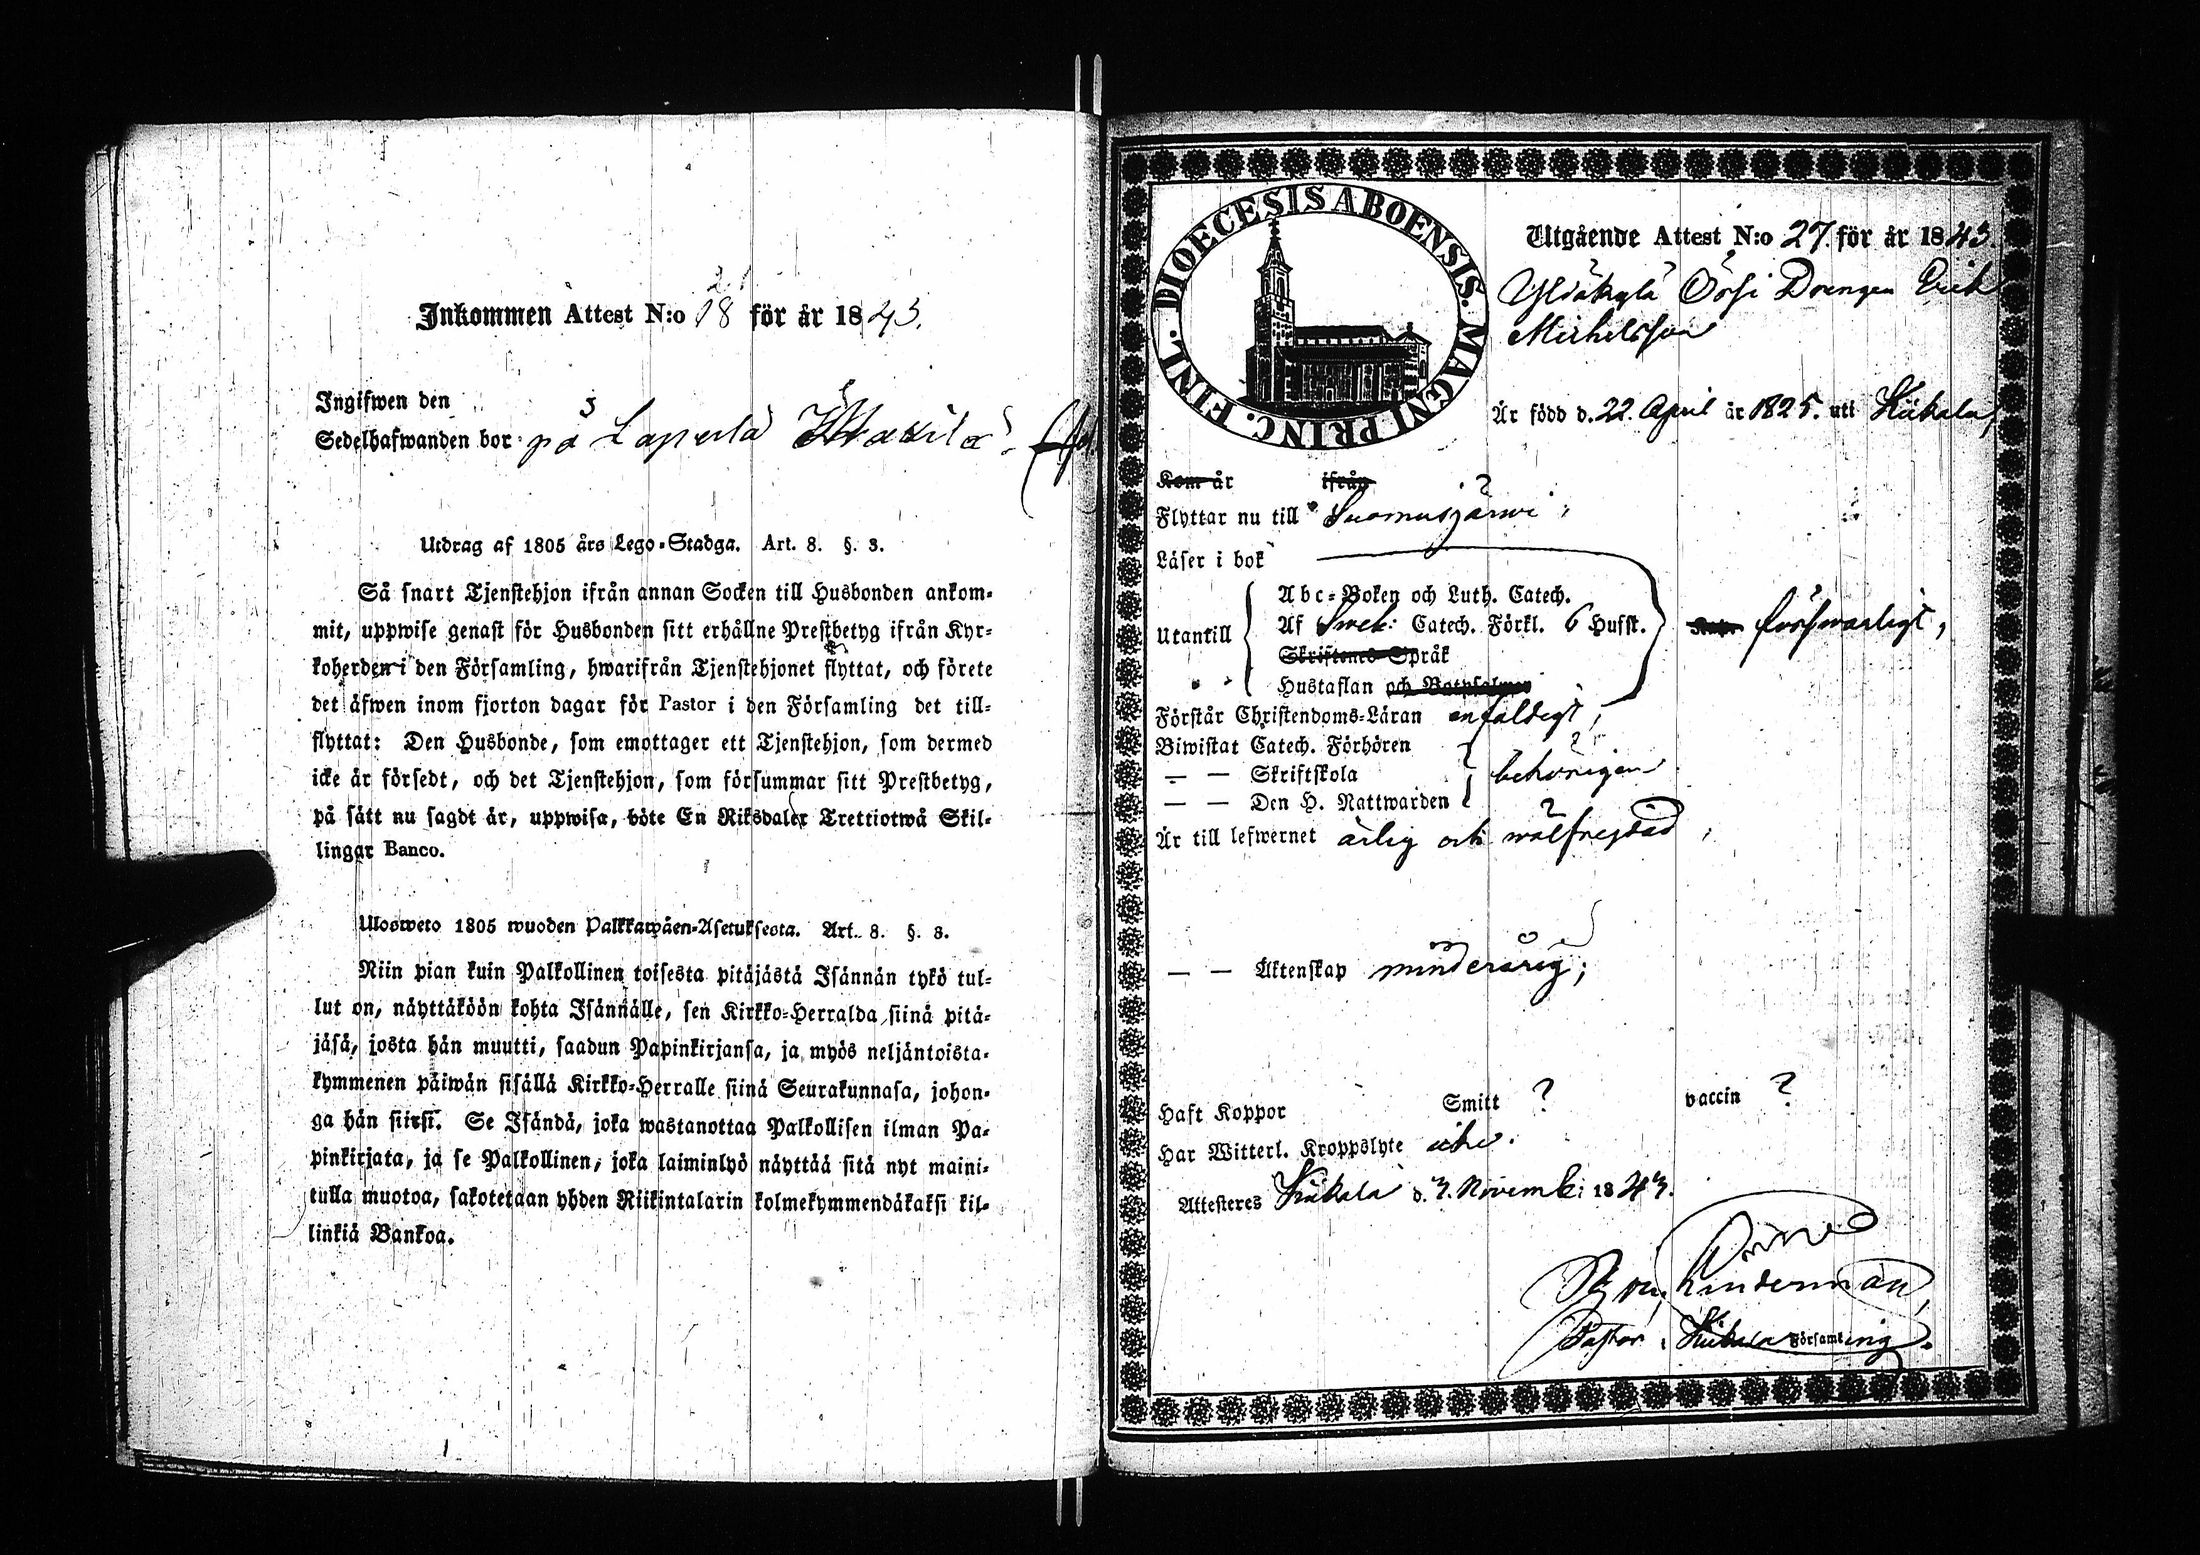 21
Inkommen Attest N:o 18 för år 1843.
Ingifwen den
Sedelhafwanden bor på Laperla
Utdrag af 1805 års Lego-Stadga. Art. 8. §. 3.
Så snart Tjenstehjon ifrån annan Socken till Husbonden ankom-
mit, uppwise genast för Husbonden sitt erhållne Prestbetyg ifrån Kyr-
koherden i den Församling, hwarifrån Tjenstehjonet flyttat, och förete
det äfwen inom fjorton dagar för Pastor i den Församling det till-
flyttat: Den Husbonde, som emottager ett Tjenstehjon, som dermed
icke är försedt, och det Tjenstehjon, som försummar sitt Prestbetyg,
på sätt nu sagdt är, uppwisa, böte En Riksdaler Trettiotwå Skil-
lingar Banco.
Ulosweto 1805 wuoden Palkkawäen-Asetuksesta. Art. 8. §. 3.
Niin pian kuin Palkollinen toisesta pitäjästä Isännän tykö tul-
lut on, näyttäköön kohta Isännälle, sen Kirkko-Herralda siinä pitä-
jäsä, josta hän muutti, saadun Papinkirjansa, ja myös neljäntoista-
kymmenen päiwän sisällä Kirkko-Herralle siinä Seurakunnasa, johon-
ga hän siirsi. Se Isändä, joka wastanottaa Palkollisen ilman Pa-
pinkirjata, ja se Palkollinen, joka laiminlyö näyttää sitä nyt maini-
tulla muotoa, sakotetaan yhden Riikintalarin kolmekymmendäkaksi kil-
linkiä Bankoa.
DIOECESIS ABOENSIS. MAGNI PRINC. FINL.
Utgående Attest N:o 27. för år 1843.
Yliskylä Örsi Drengen Erik
Michelsson
Är född d. 22. April år 1825. uti Kiikala,
Kom år ifrån
Flyttar nu till Suomusjärwi,
Läser i bok
Utantill
Abc-Boken och Luth. Catech.
Af Sweb. Catech. Förkl. 6 Hufst. förswarligt,
Skriftenes Språk
Hustaflan och Botpsalmer
Förstår Christendoms-Läran enfaldigt,
Biwistat Catech. Förhören
— — Skriftskola behörigen
— — Den H. Nattwarden
Är till lefwernet ärlig och wälfrejdad,
— — Äktenskap minderårig;
Haft Koppor Smitt ? vaccin ?
Har Witterl. Kroppslyte icke.
Attesteres Kiikala d. 3. Novemb: 1843.
Linderman,
Pastor i Kiikala Församling.